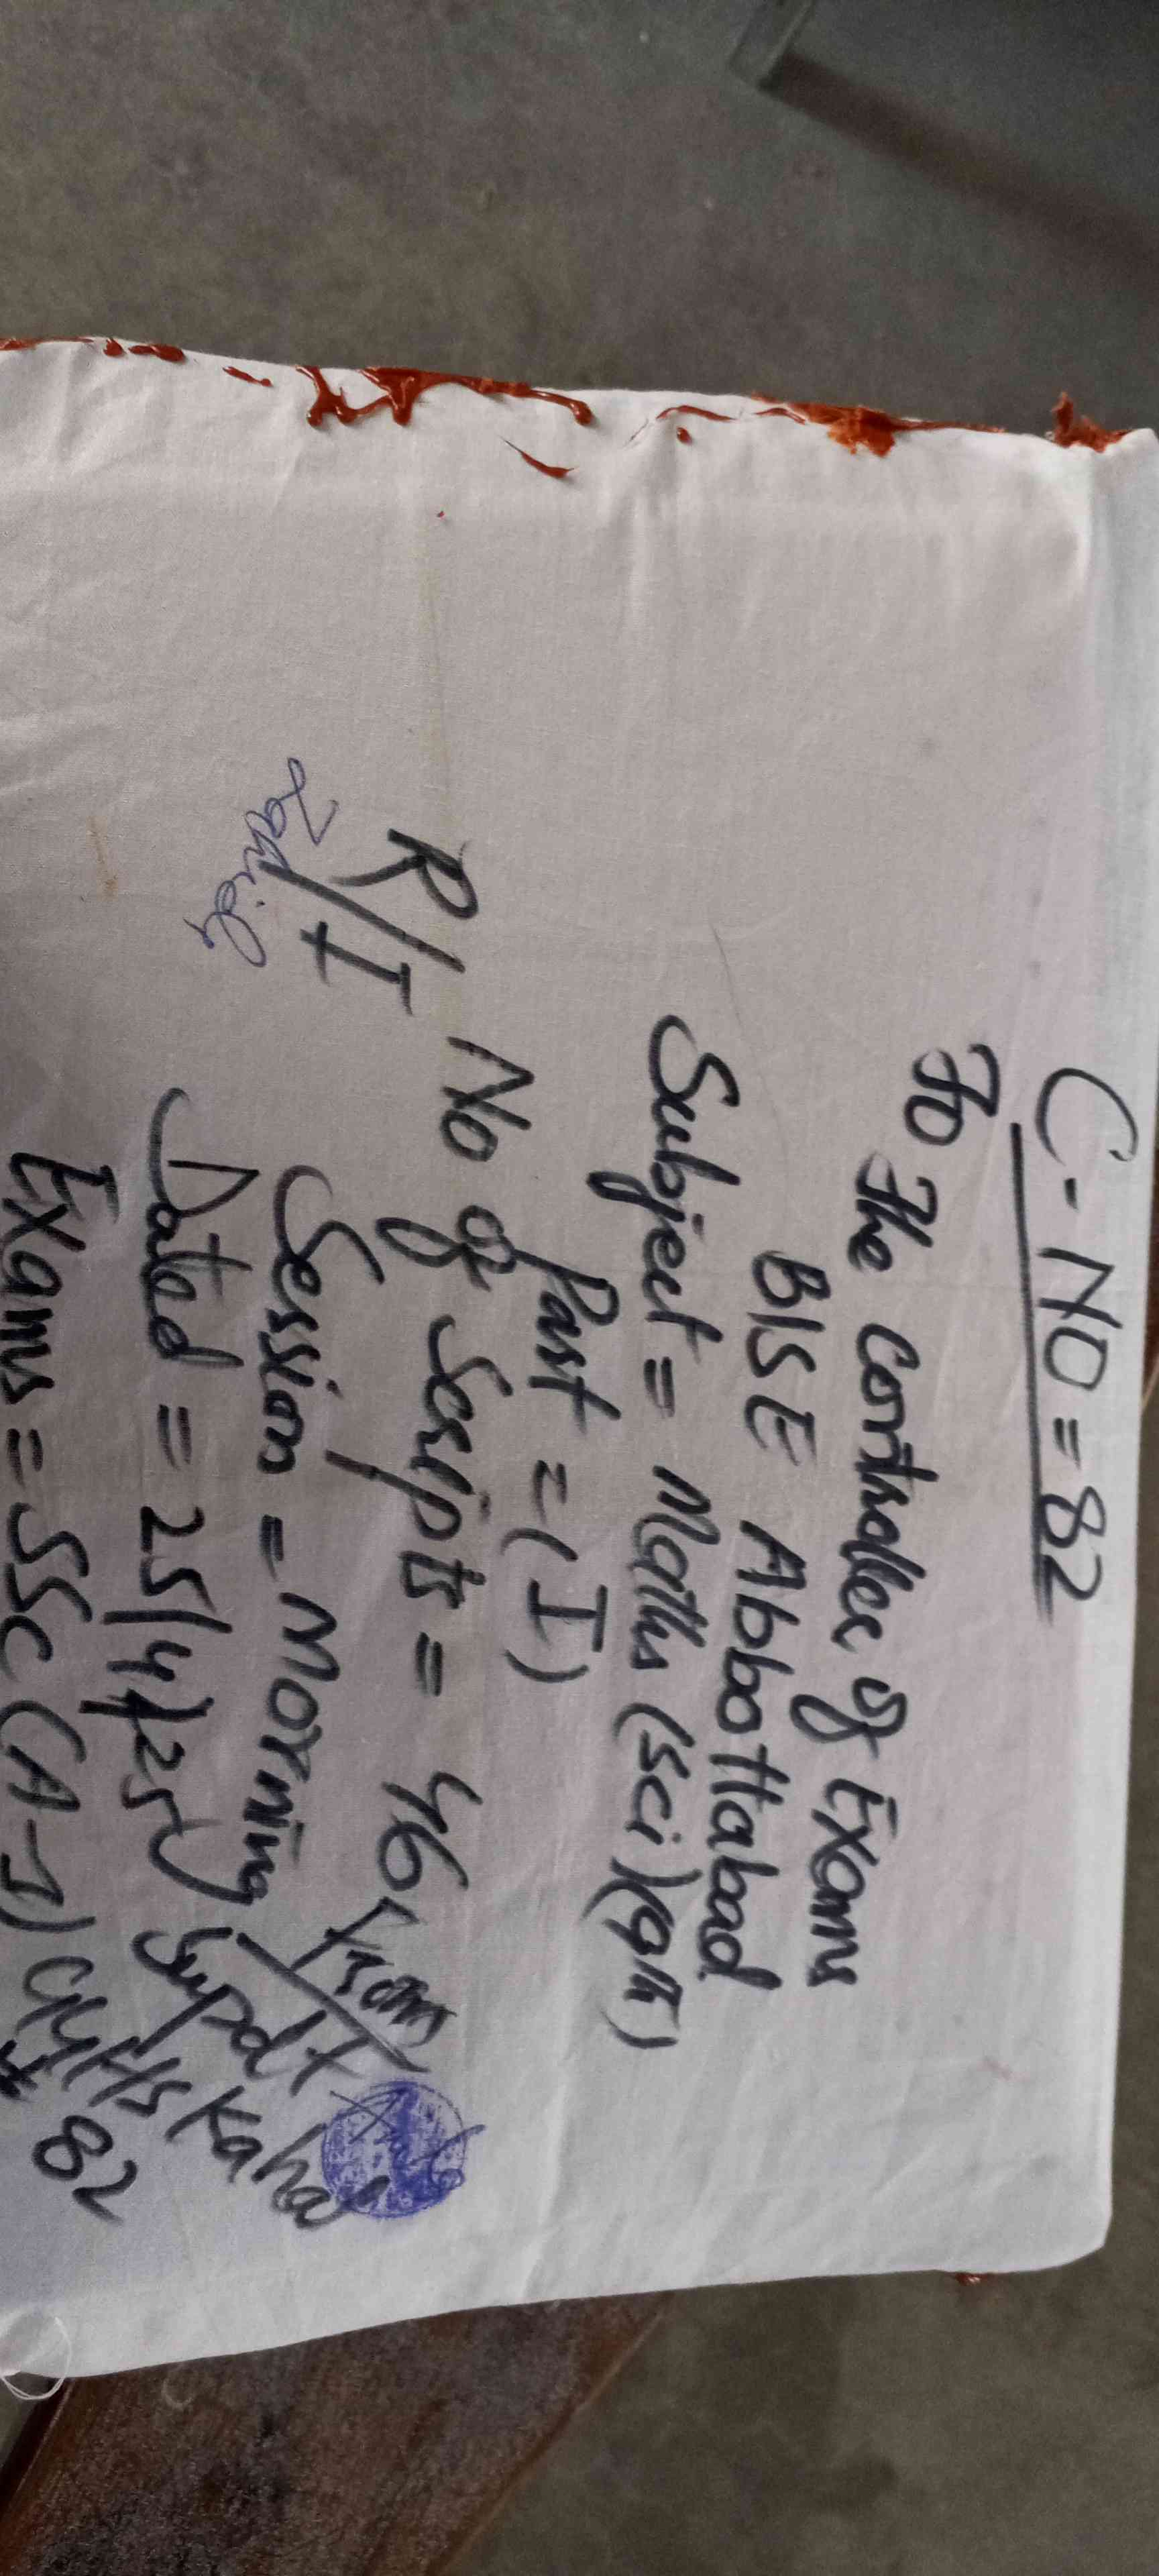 C-NO = 82
To The Controller of Exams
BISE Abbottabad
Subject = Maths (Sci) (9th)
Part = (I)
No of Scripts = 46
R/I
Session = Morning
Dated = 25/4/25
Supdt
Exams = SSC (A-I) GHHS Kahal
82